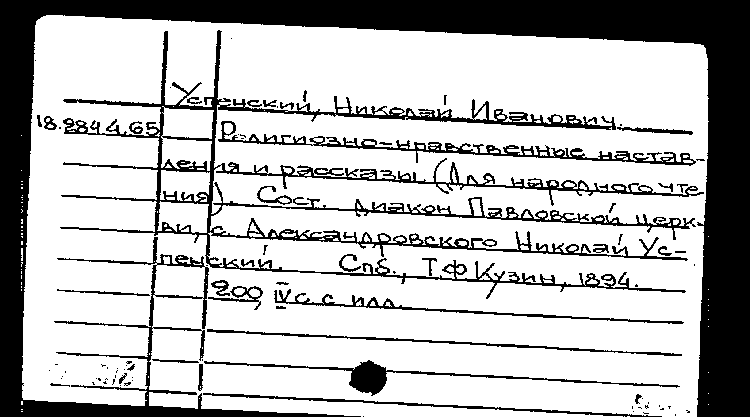 Успенский, Николай Иванович.
18.284 4.65
Религиозно-нравственные настав-
ления и рассказы (Для народного чте-
ния). Сост. диакон Павловской церк-
ви, с. Александровского Николай Ус-
пенский. Спб., Т.Ф Кузин, 1894.
200, IV с. с илл.